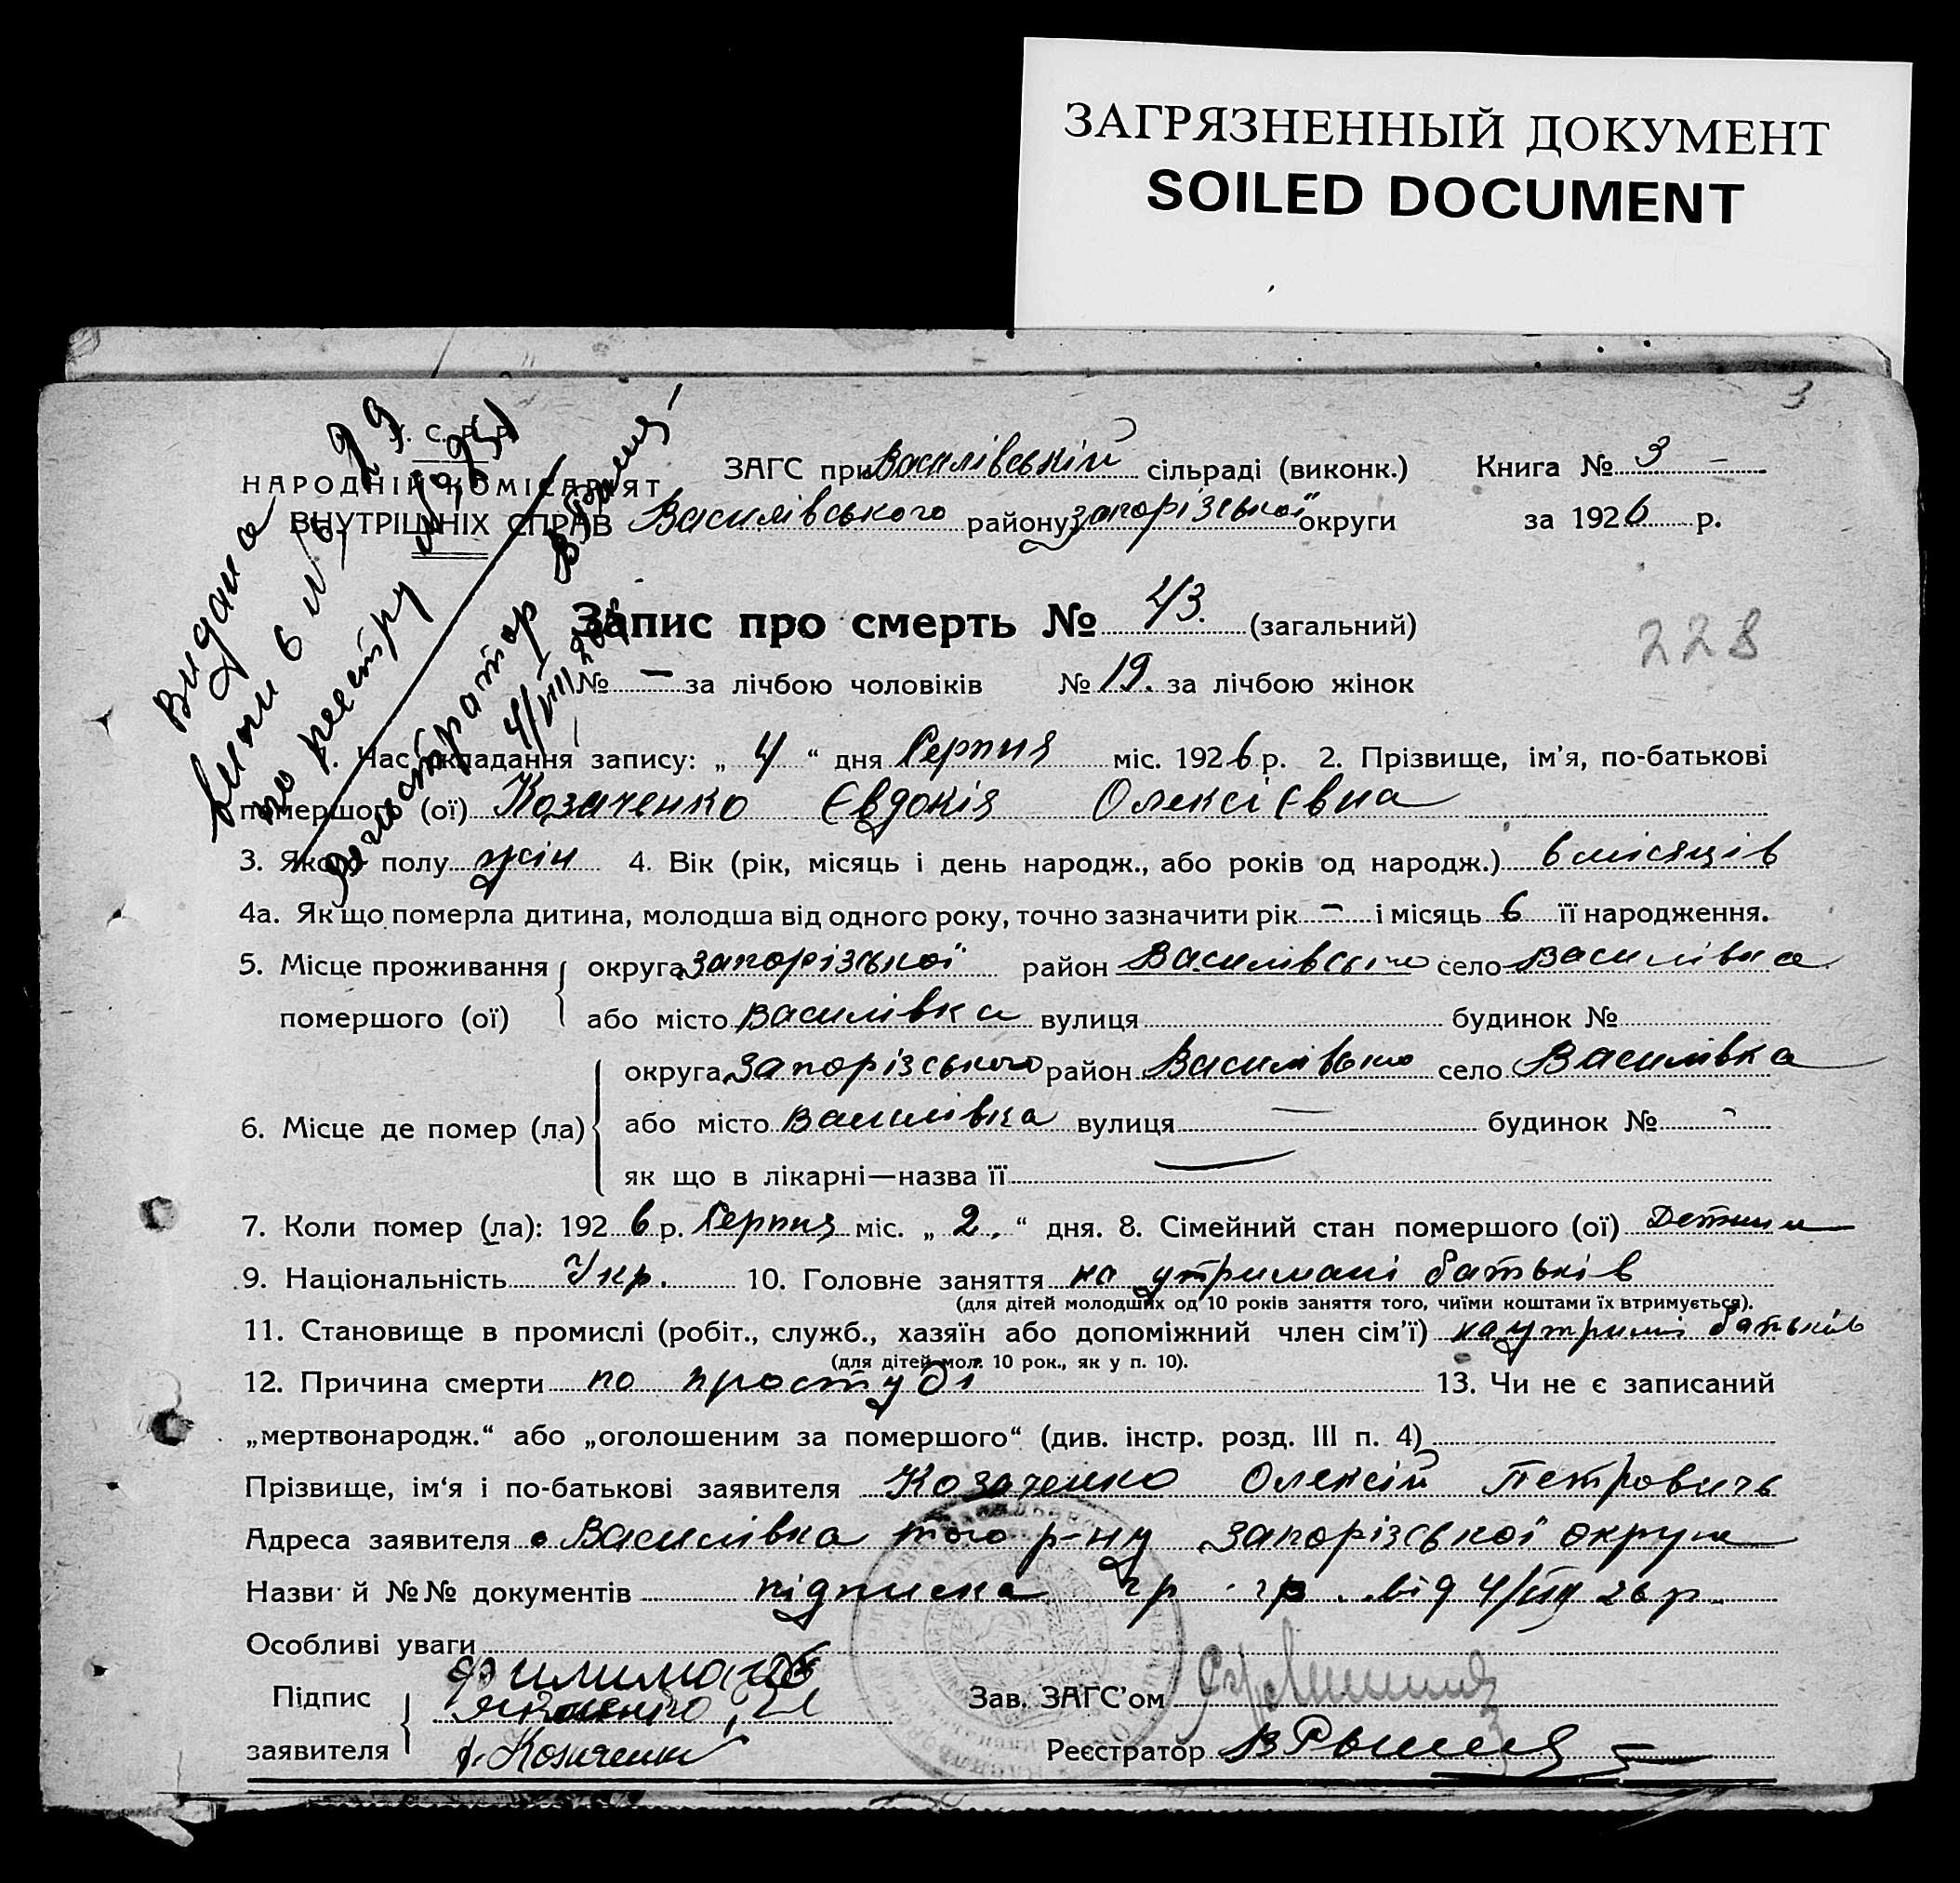 ЗАГРЯЗНЕННЫЙ ДОКУМЕНТ
SOILED DOCUMENT
3
У. С. Р. Р.
НАРОДНІЙ КОМІСАРІЯТ
ВНУТРІШНІХ СПРАВ
ЗАГС при Василівській сільраді (виконк.) Книга № 3 –
Василівського району Запорізської округи за 1926 р.
Видана
по реестру
Регистратор
4/VIII 26
Запис про смерть № 43. (загальний)
228
№ – за лічбою чоловіків № 19. за лічбою жінок
1. Час складання запису: „ 4 “ дня Серпня міс. 1926 р. 2. Прізвище, ім’я, по-батькові
помершого (ої) Козаченко Євдокія Олексієвна
3. Якого полу жін 4. Вік (рік, місяць і день народж., або років од народж.) 6 місяців
4а. Як що померла дитина, молодша від одного року, точно зазначити рік – і місяць 6 її народження.
5. Місце проживання помершого (ої) округа Запорізської район Василівсько село Василівка
або місто Василівка вулиця будинок №
6. Місце де помер (ла) округа Запорізського район Василівсько село Василівка
або місто Василівка вулиця — будинок № –
як що в лікарні—назва її —
7. Коли помер (ла): 1926 р. Серпня міс. „ 2. “ дня. 8. Сімейний стан помершого (ої) Детина
9. Національність Укр. 10. Головне заняття на утримані батьків
(для дітей молодших од 10 років заняття того, чиїми коштами їх втримується).
11. Становище в промислі (робіт., служб., хазяїн або допоміжний член сім’ї) на утримі батьків
(для дітей мол. 10 рок., як у п. 10).
12. Причина смерти по простуді 13. Чи не є записаний
„мертвонародж.“ або „оголошеним за помершого“ (див. інстр. розд. III п. 4)
Прізвище, ім‘я і по-батькові заявителя Козаченко Олексій Петровичь
Адреса заявителя с Василівка того р-ну Запорізської округи
Назви й №№ документів підписка гр. гр. від 4/VIII 26 р.
Особливі уваги
Підпис заявителя
Козаченко
Зав. ЗАГС’ом
Реєстратор